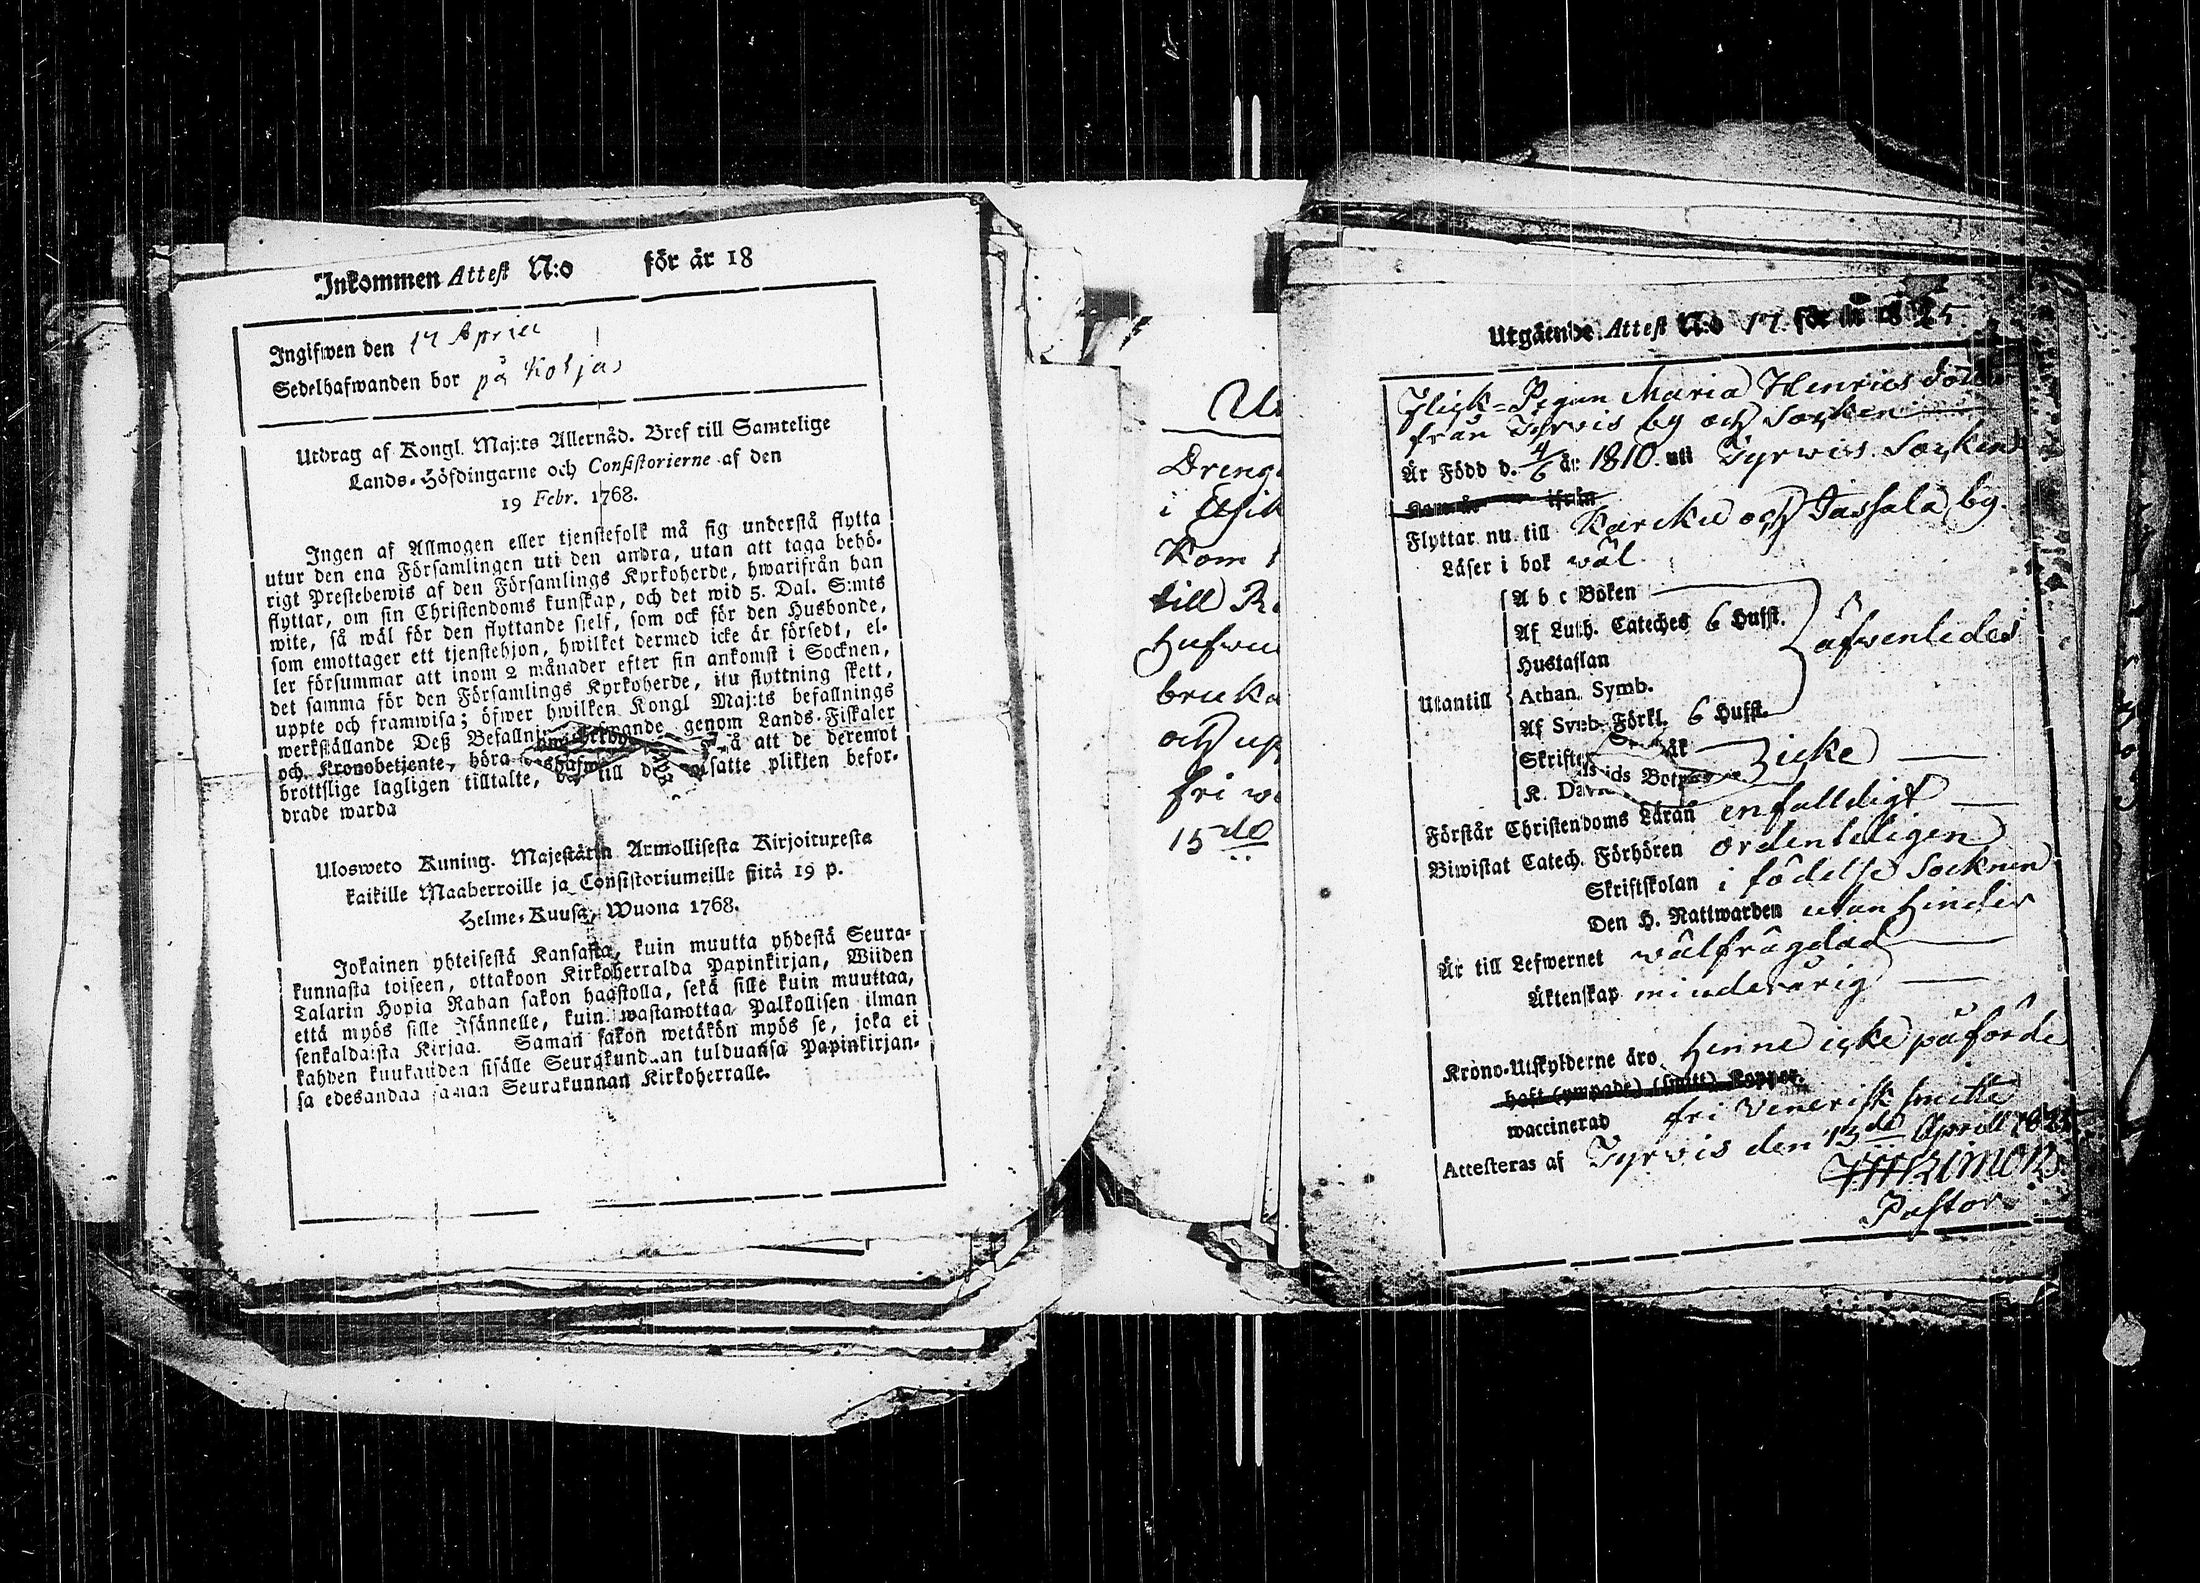 Inkommen Attest N:o för år 18
Ingifwen den 17 April
Sedelhafwanden bor på Kohjas
Utdrag af Kongl. Maj:ts Allernåd. Bref till Samtelige
Lands-Höfdingarne och Consistorierne af den
19 Febr. 1768.
Ingen af Allmogen eller tjenstefolk må sig understå flytta
utur den ena Församlingen uti den andra, utan att taga behö-
rigt Prestebewis af den Församlings Kyrkoherde, hwarifrån han
flyttar, om sin Christendoms kunskap, och det wid 5. Dal. S:mts
wite, så wäl för den flyttande sjelf, som ock för den Husbonde,
som emottager ett tjenstehjon, hwilket dermed icke är försedt, el-
ler försummar att inom 2 månader efter sin ankomst i Socknen,
det samma för den Församlings Kyrkoherde, itu flyttning skett,
uppte och framwisa; öfwer hwilken Kongl Maj:ts befallnings
werkställande Deß genom Lands-Fiskaler
och Kronobetjente, höra å att de deremot
brottslige lagligen tilltalte, till satte plikten befor-
drade warda
Ulosweto Kuning. Majestätin Armollisesta Kirjoituxesta
kaikille Maaherroille ja Consistoriumeille siitä 19 p.
Helme-Kuusa, Wuona 1768.
Jokainen yhteisestä Kansasta, kuin muutta yhdestä Seura-
kunnasta toiseen, ottakoon Kirkoherralda Papinkirjan, Wiiden
Talarin Hopia Rahan sakon haastolla, sekä sille kuin muuttaa,
että myös sille Isännelle, kuin wastanottaa Palkollisen ilman
senkaldaista Kirjaa. Saman sakon wetäkön myös se, joka ei
kahden kuukauden sisälle Seurakundaan tulduansa Papinkirjan-
sa edesandaa saman Seurakunnan Kirkoherralle.
Dreng
i
Kom
till
Hufwu
bruka
och up
fri w
15de
Utgående Attest N:o 17 för år 1825
Flick-Pigan Maria Henrics dotter
från Tyrvis by och Socken
Är Född d. 4/6 år 1810 uti Tyrwis Socken
Flyttar nu till Karcku och Tassala by
Läser i bok wäl
Utantill
A b c Boken
Af Luth. Cateches 6 Hufst.
Hustaflan
Athan. Symb.
Af Symb. Förkl. 6 Hufst.
äfwenledes
Skrifte
K. Dav ds Botps
icke
Förstår Christendoms Läran enfalldigt
Biwistat Catech. Förhören ordenteligen
Skriftskolan i födelse Socknen
Den H. Nattwarden utan hinder
Är till Lefwernet wälfrägdad
Äktenskap minderårig
Krono-Utskylderne äro Henne icke påförde
haft (ympade) (smitt) koppor.
waccinerad fri Venerisk smitta
Attesteras af Tyrvis den 13de Aprill 1825
Pastor